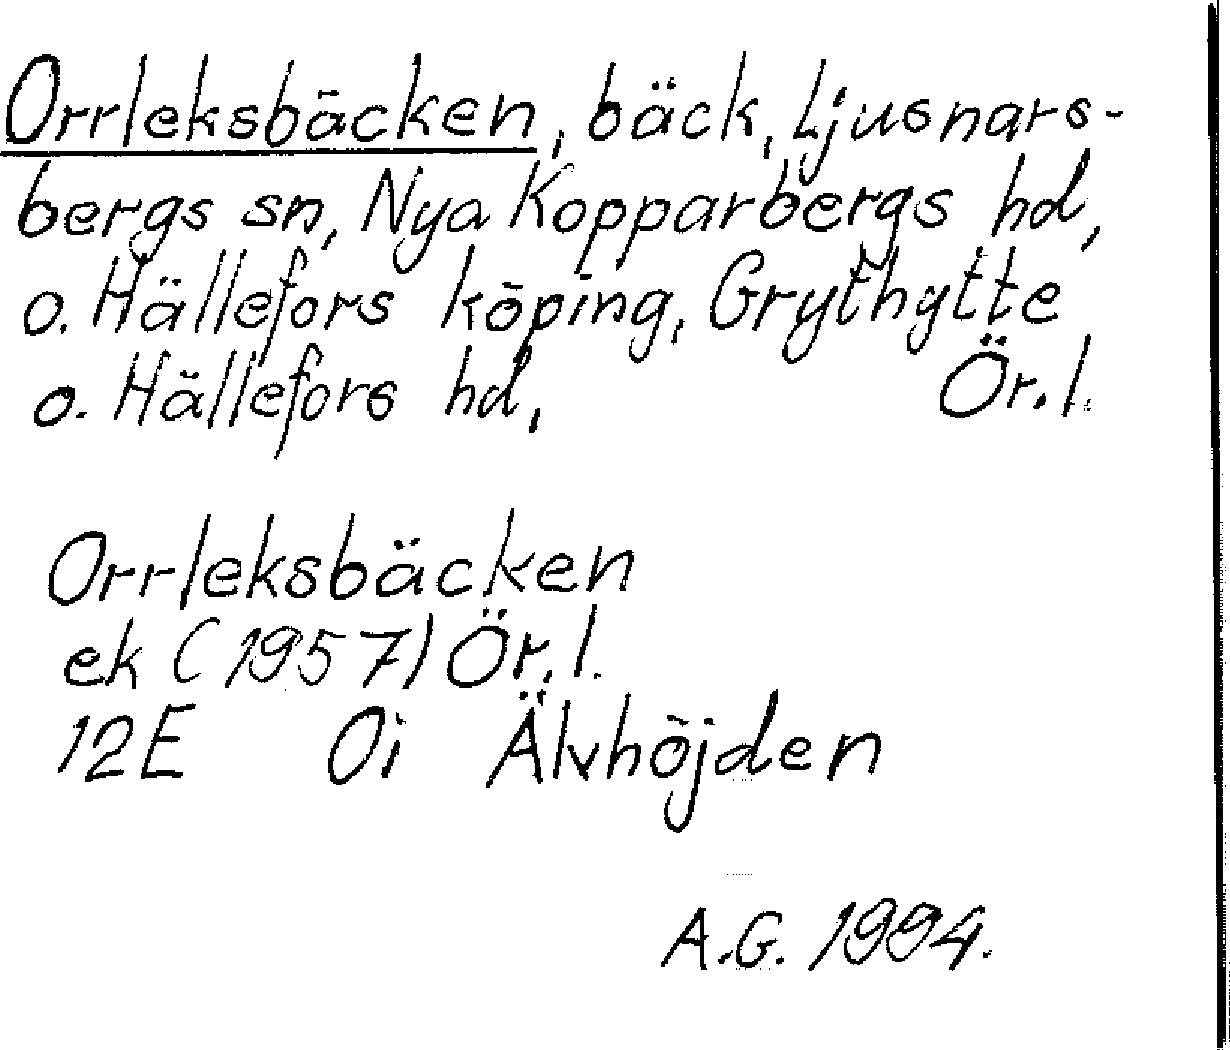 Orrleksbäcken, bäck, Ljusnars-
bergs sn, Nya Kopparbergs hd,
o. Hällefors köping, Grythytte
o. Hällefors hd, Ör. l.
Orrleksbäcken
ek (1957) Ör. l.
12E 0i Älvhöjden
A.G. 1994.